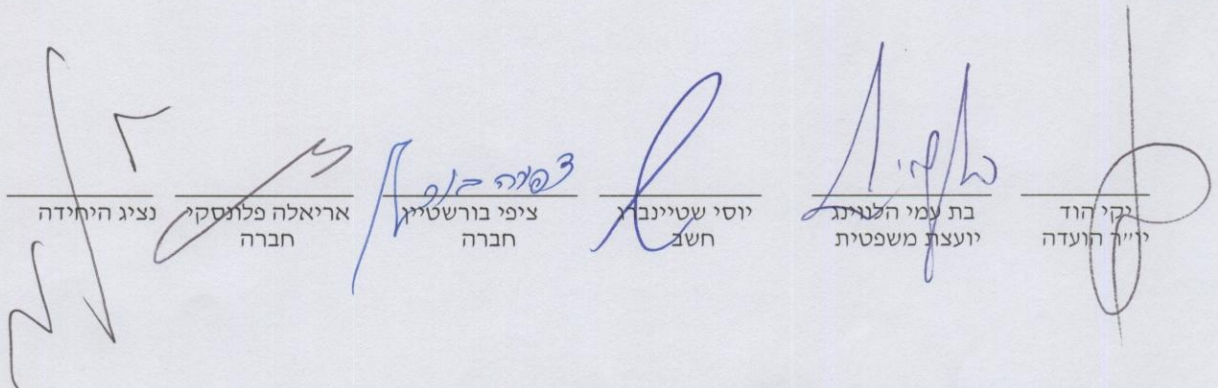 יקי הוד
יו״ר הועדה
בת עמי הלווינג
יועצת משפטית
יוסי שטיינברג
חשב
ציפי בורשטיין
חברה
אריאלה פלונסקי
חברה
נציג היחידה